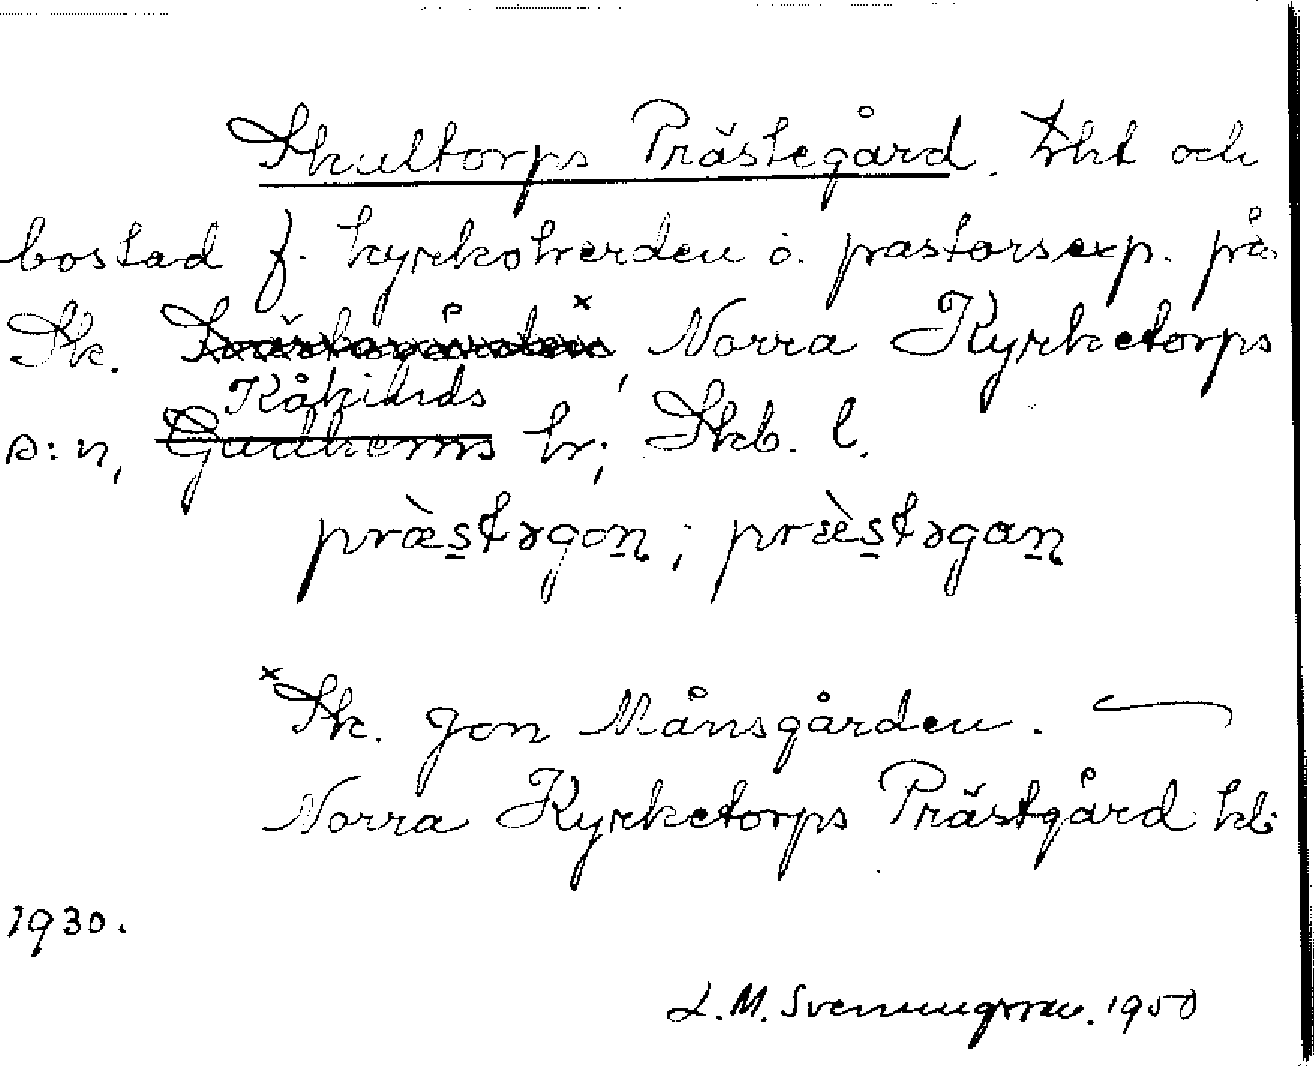 Skultorps Prästegård. Trkt och
bostad f. kyrkoherden o. pastorsexp. på
Sk. Svärtagården ˣ, Norra Kyrketorps
Kåkinds
s:n, Gudhems hr; Skb. l.
præ̀s̲t̲əgon̲; præ̀s̲t̲əgan̲
ˣSk. Jon Månsgården. —
Norra Kyrketorps Prästgård kb.
1930.
L. M. Svenungsson. 1950